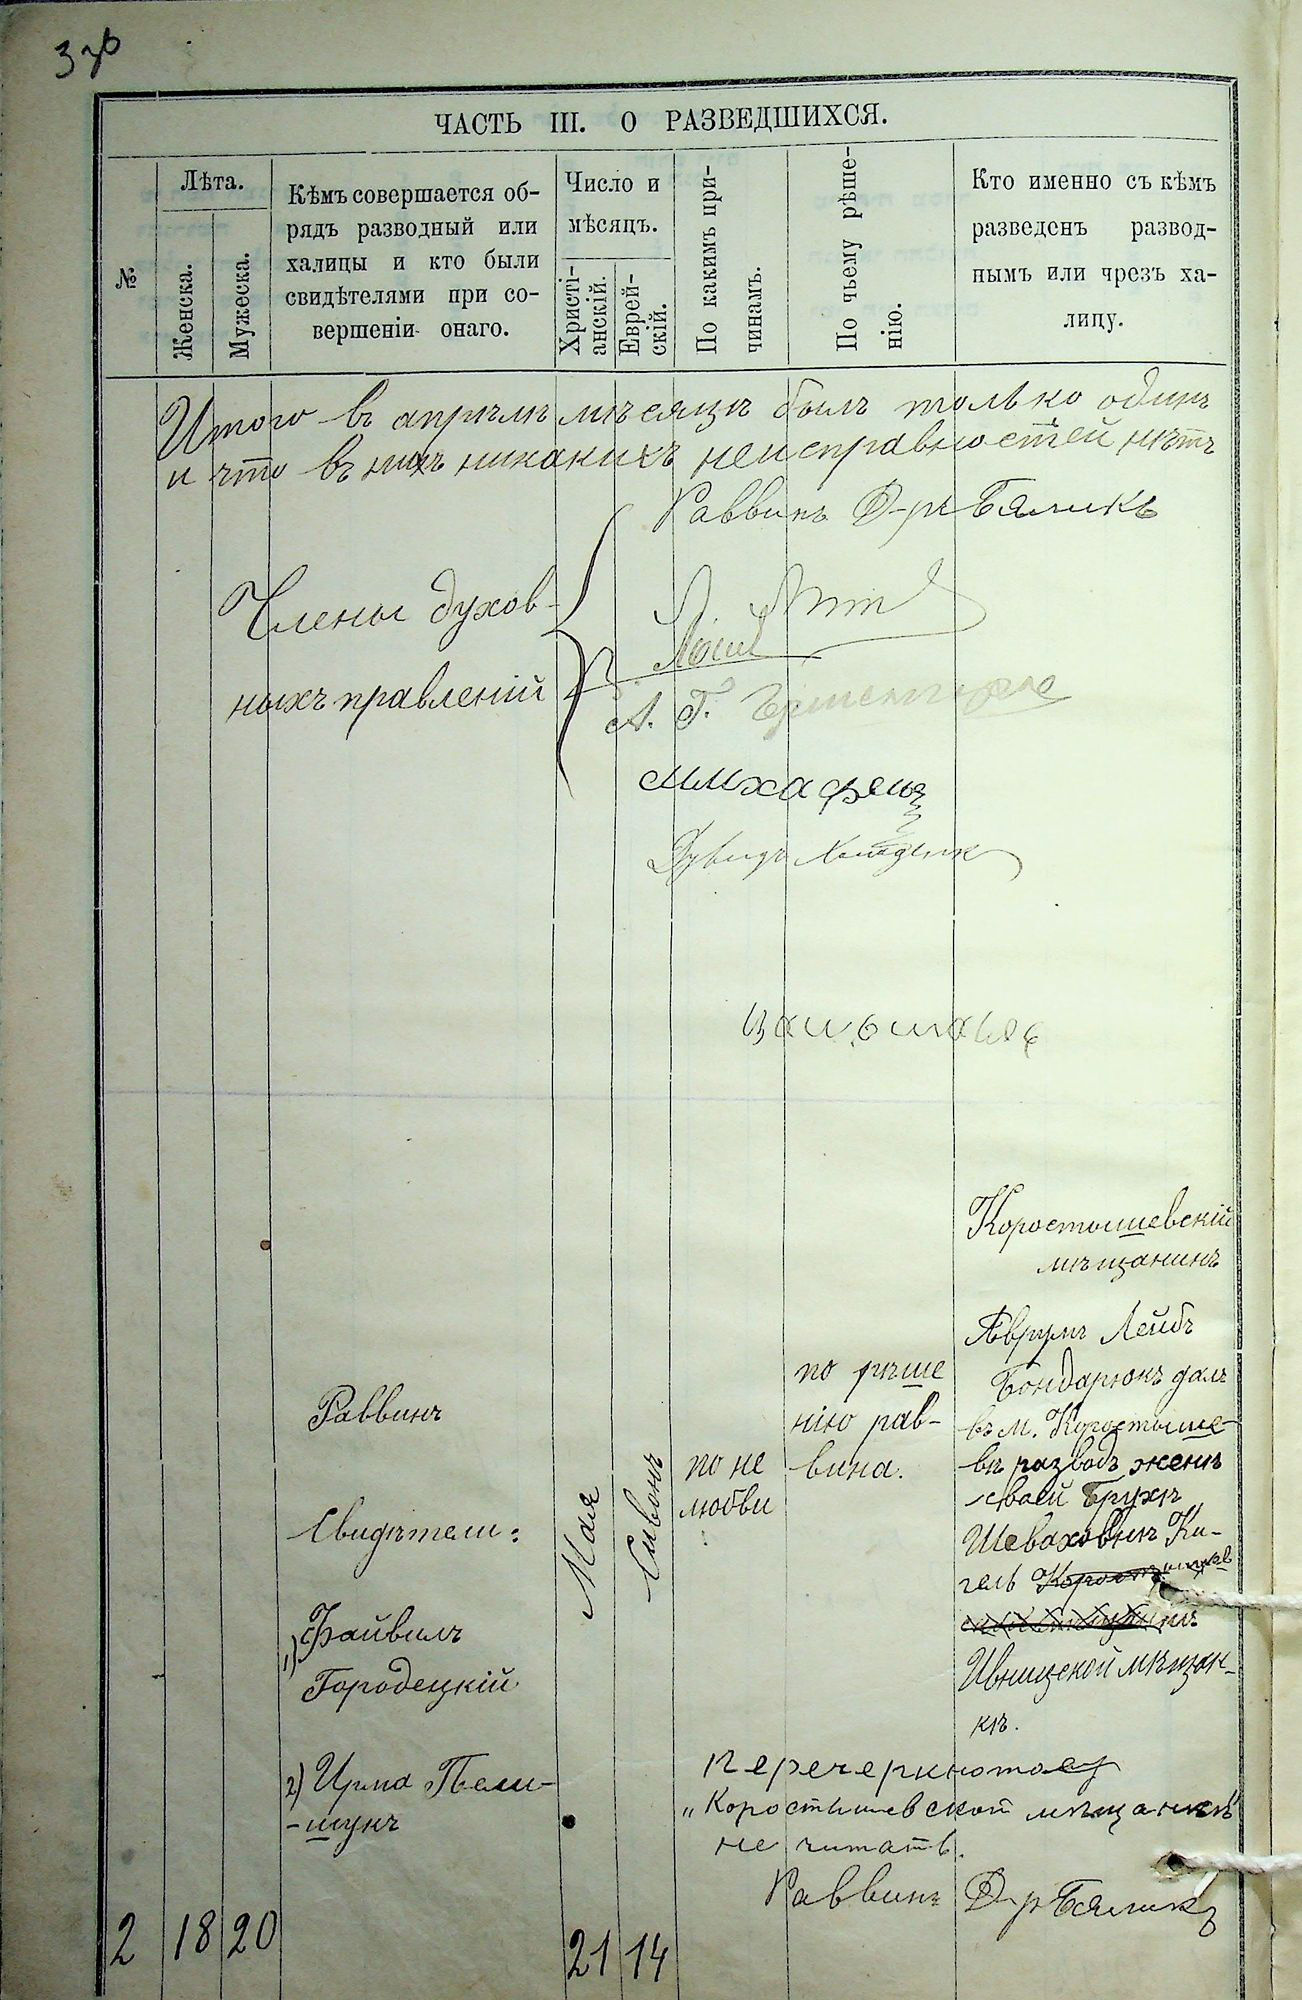 ЧАСТЬ III. О РАЗВЕДШИХСЯ.
№
Лѣта.
Женска.
Мужеска.
Кѣмъ совершается об-
рядъ разводный или
халицы и кто были
свидѣтелями при со-
вершеніи онаго.
Число и
мѣсяцъ.
Христі-
анскій.
Еврей-
скій.
По какимъ при-
чинамъ.
По чьему рѣше-
нію.
Кто именно съ кѣмъ
разведенъ развод-
нымъ или чрезъ ха-
лицу.
Итого въ апрѣлѣ мѣсяцѣ былъ только одинъ
и что въ нихъ никакихъ неисправностей нѣтъ
Раввинъ Д-ръ Бяликъ
Члены духов-
ныхъ правленій
А. Г.
2
18
20
Раввинъ
Свидѣтели:
1) Файвилъ
Городецкій
2) Ицка Пели-
-щукъ
Мая
21
Сивонъ
14
по не
любви
по рѣше
нію рав-
вина.
Коростышевскій
мѣщанинъ
Аврумъ Лейбъ
Бондарюкъ далъ
въ м. Коростыше-
вѣ разводъ женѣ
своей Брухѣ
Шеваховнѣ Ки-
гель
Ивницкой мѣщан-
кѣ.
Перечеркнотоеу
„Коростышевской мѣщанкѣ"
не читать.
Раввинъ Д-ръ Бяликъ